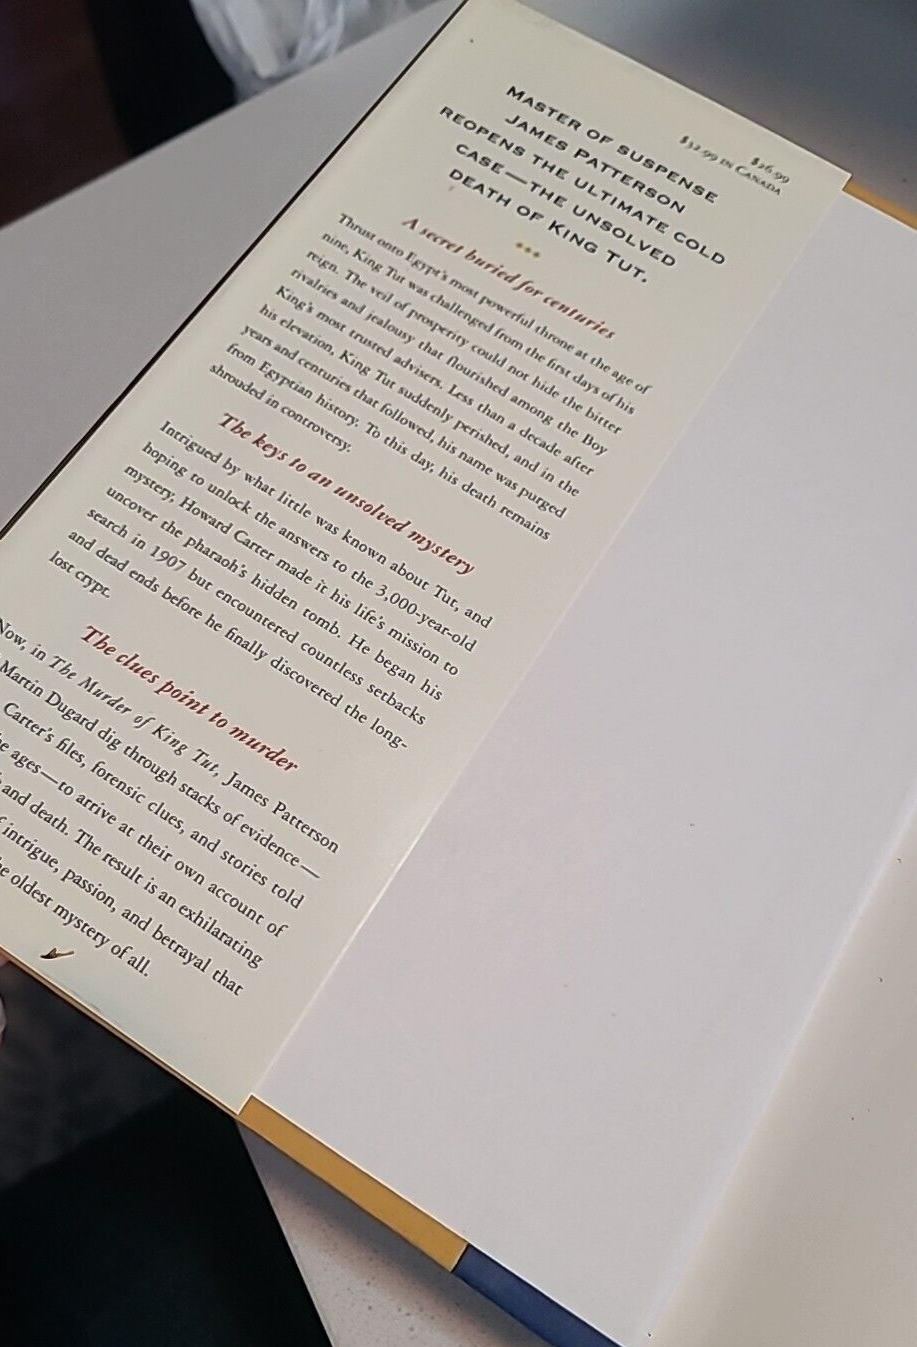 $26.99
$32.99 IN CANADA
MASTER OF SUSPENSE
JAMES PATTERSON
REOPENS THE ULTIMATE COLD
CASE—THE UNSOLVED
DEATH OF KING TUT.
A secret buried for centuries
Thrust onto Egypt's most powerful throne at the age of
nine, King Tut was challenged from the first days of his
reign. The veil of prosperity could not hide the bitter
rivalries and jealousy that flourished among the Boy
King's most trusted advisers. Less than a decade after
his elevation, King Tut suddenly perished, and in the
years and centuries that followed, his name was purged
from Egyptian history. To this day, his death remains
shrouded in controversy.
The keys to an unsolved mystery
Intrigued by what little was known about Tut, and
hoping to unlock the answers to the 3,000-year-old
mystery, Howard Carter made it his life's mission to
uncover the pharaoh's hidden tomb. He began his
search in 1907 but encountered countless setbacks
and dead ends before he finally discovered the long-
lost crypt.
The clues point to murder
Now, in The Murder of King Tut, James Patterson
Martin Dugard dig through stacks of evidence—
Carter's files, forensic clues, and stories told
ages—to arrive at their own account of
and death. The result is an exhilarating
intrigue, passion, and betrayal that
oldest mystery of all.